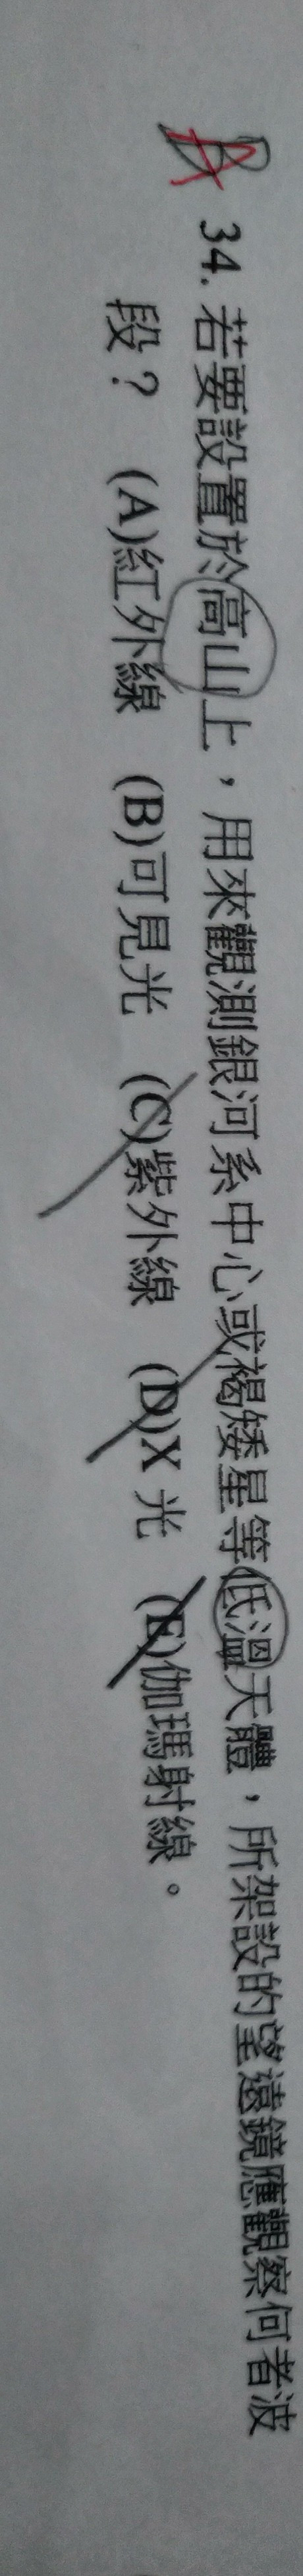 A 34. 若要設置於高山上，用來觀測銀河系中心或褐矮星等低溫天體，所架設的望遠鏡應觀察何者波
段？ (A)紅外線 (B)可見光 (C)紫外線 (D)X 光 (E)伽瑪射線。